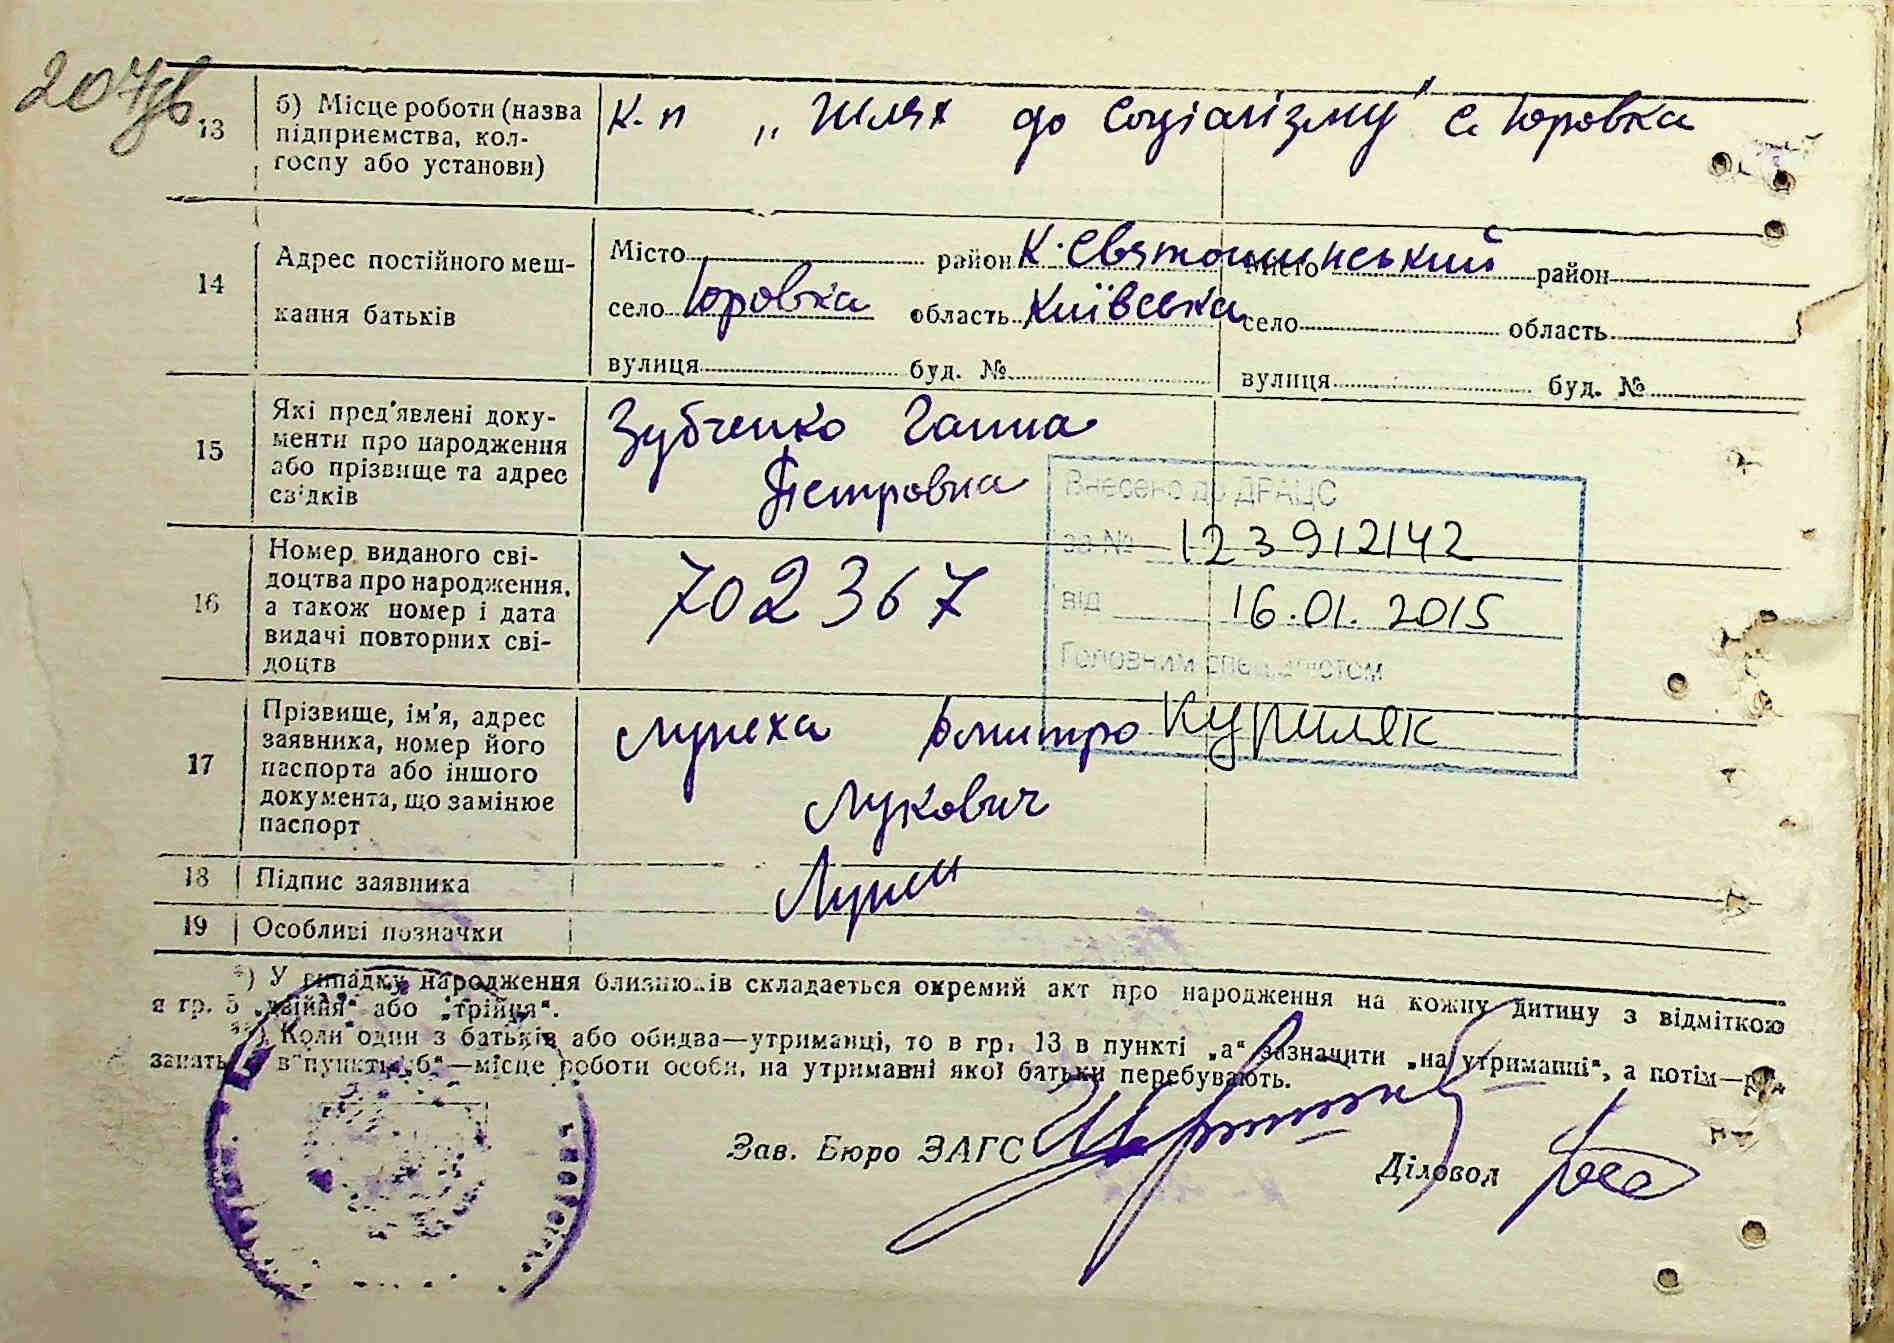 207зв
13
б) Місце роботи (назва
підприємства, кол-
госпу або установи)
к-п „Шлях до Соціалізму" с. Юровка
14
Адрес постійного меш-
кання батьків
Місто район К.Святошинський
село Юровка область Київська
вулиця буд. №
Місто район
село область
вулиця буд. №
15
Які пред'явлені доку-
менти про народження
або прізвище та адрес
свідків
Зубченко Ганна
Петровна
Внесено до ДРАЦС
за № 123912142
від 16.01.2015
Головним спеціалістом
Куриляк
16
Номер виданого сві-
доцтва про народження,
а також номер і дата
видачі повторних сві-
доцтв
702367
17
Прізвище, ім'я, адрес
заявника, номер його
паспорта або іншого
документа, що замінює
паспорт
Дмитро
Лукович
18 Підпис заявника
19 Особливі позначки
*) У випадку народження близнюків складається окремий акт про народження на кожну дитину з відміткою
в гр. 5 „двійня" або „трійця".
**) Коли один з батьків або обидва—утриманці, то в гр. 13 в пункті „а" зазначити „на утриманні", а потім—
в пункті „б"—місце роботи особи, на утриманні якої батьки перебувають.
Зав. Бюро ЗАГС
Діловод